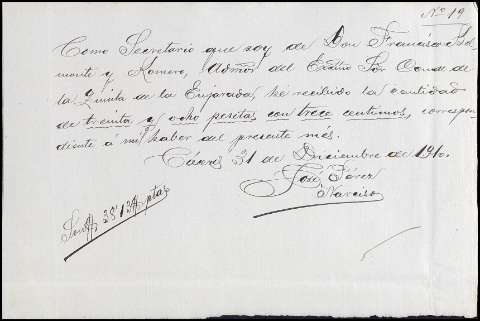 Nº 19
Como Secretario que soy de Don Francisco Bel-
monte y Romero, Admor del Excmo Sor Conde de
la Quinta de la Enjarada, he recibido la cantidad
de treinta y ocho pesetas con trece centimos, correspon-
diente á mi haber del presente mes.
Cáceres 31 de Diciembre de 1910.
José Pérez
Narciso
Son # 38'13 # ptas